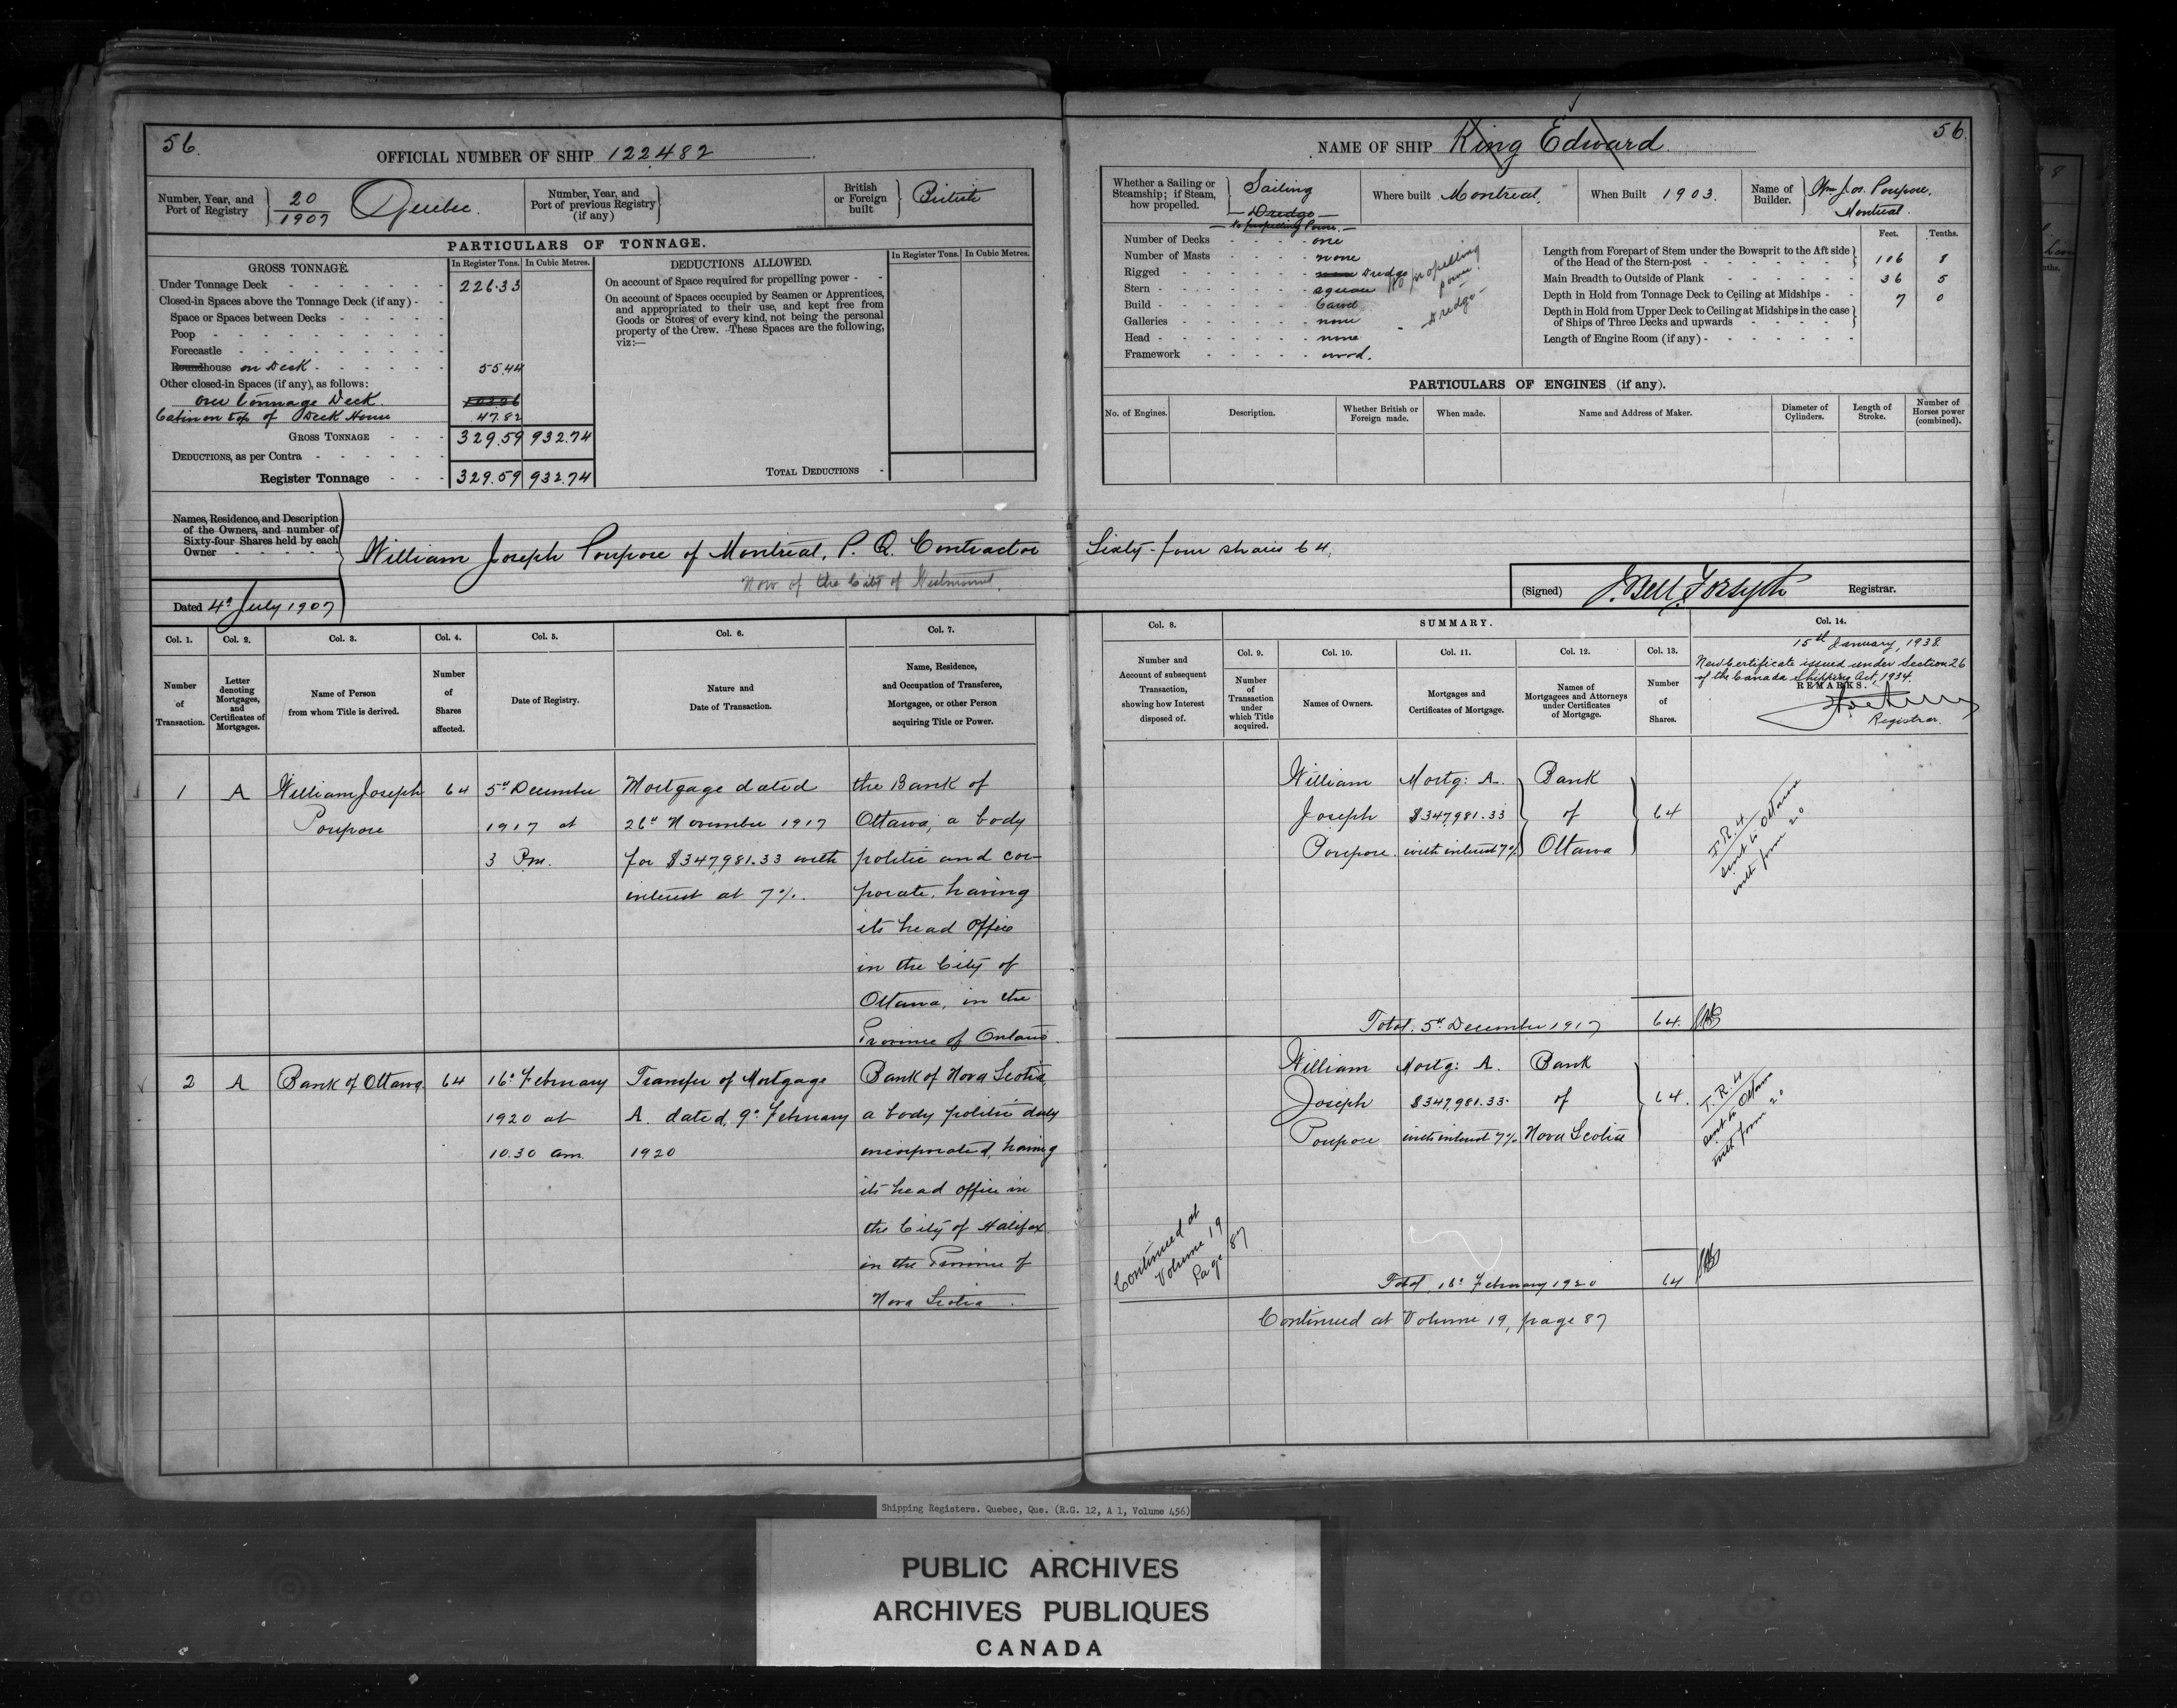 56.
OFFICIAL NUMBER OF SHIP 122482
Number, Year, and Port of Registry 20/1907 Quebec.
Number, Year, and Port of previous Registry (if any)
British or Foreign built British
PARTICULARS OF TONNAGE.
GROSS TONNAGE.
In Register Tons.
In Cubic Metres.
DEDUCTIONS ALLOWED.
In Register Tons.
In Cubic Metres.
Under Tonnage Deck 226.33
Closed-in Spaces above the Tonnage Deck (if any)
Space or Spaces between Decks
Poop
Forecastle
Roundhouse on Deck 55.44
Other closed-in Spaces (if any), as follows:
over Tonnage Deck.
Cabin on top of Deck House 47.82
GROSS TONNAGE 329.59 932.74
DEDUCTIONS, as per Contra
Register Tonnage 329.59 932.74
On account of Space required for propelling power
On account of Spaces occupied by Seamen or Apprentices,
and appropriated to their use, and kept free from
Goods or Stores of every kind, not being the personal
property of the Crew. These Spaces are the following,
viz:—
TOTAL DEDUCTIONS
Names, Residence, and Description
of the Owners, and number of
Sixty-four Shares held by each
Owner
William Joseph Poupore of Montreal, P. Q. Contractor
Now of the City of Westmount.
Dated 4th July 1907
Col. 1.
Number of Transaction.
Col. 2.
Letter denoting Mortgages, and Certificates of Mortgages.
Col. 3.
Name of Person from whom Title is derived.
Col. 4.
Number of Shares affected.
Col. 5.
Date of Registry.
Col. 6.
Nature and Date of Transaction.
Col. 7.
Name, Residence, and Occupation of Transferee, Mortgagee, or other Person acquiring Title or Power.
1 A William Joseph 64 5th December Mortgage dated the Bank of
Poupore 1917 at 26th November 1917 Ottawa, a body
3 Pm. for $347,981.33 with politic and cor-
interest at 7%. porate, having
its head Office
in the City of
Ottawa, in the
Province of Ontario.
2 A Bank of Ottawa 64 16th February Transfer of Mortgage Bank of Nova Scotia,
1920 at A. dated 9th February a body politic duly
10.30 am. 1920 incorporated, having
its head office in
the City of Halifax
in the Province of
Nova Scotia.
56.
NAME OF SHIP King Edward
Whether a Sailing or Steamship; if Steam, how propelled. Sailing
Dredge
No propelling Power.
Where built Montreal,
When Built 1903.
Name of Builder. Wm Jos. Poupore.
Montreal.
Number of Decks one
Number of Masts none
Rigged none Dredge
Stern square
Build Carvel
Galleries none
Head none
Framework wood.
No propelling
power.
Dredge
Feet.
Tenths.
Length from Forepart of Stem under the Bowsprit to the Aft side
of the Head of the Stern-post 106 8
Main Breadth to Outside of Plank 36 5
Depth in Hold from Tonnage Deck to Ceiling at Midships 7 0
Depth in Hold from Upper Deck to Ceiling at Midships in the case
of Ships of Three Decks and upwards
Length of Engine Room (if any)
PARTICULARS OF ENGINES (if any).
No. of Engines.
Description.
Whether British or Foreign made.
When made.
Name and Address of Maker.
Diameter of Cylinders.
Length of Stroke.
Number of Horses power (combined).
Sixty-four shares 64.
(Signed) J. Bell Forsyth Registrar.
Col. 8.
Number and Account of subsequent Transaction, showing how Interest disposed of.
SUMMARY.
Col. 9.
Number of Transaction under which Title acquired.
Col. 10.
Names of Owners.
Col. 11.
Mortgages and Certificates of Mortgage.
Col. 12.
Names of Mortgagees and Attorneys under Certificates of Mortgage.
Col. 13.
Number of Shares.
Col. 14.
15th January, 1938.
New Certificate issued under Section 26
of the Canada Shipping Act, 1934.
REMARKS.
Registrar.
William Mortg: A. Bank
Joseph $347,981.33 of 64
Poupore. with interest 7% Ottawa
T.R.4
sent to Ottawa
with form 20
Total. 5th December 1917 64.
William Mortg: A. Bank
Joseph $347,981.33. of 64.
Poupore with interest 7% Nova Scotia
T.R.4
sent to Ottawa
with form 20
Continued at
Volume 19
Page 87
Total 16th February 1920 64
Continued at Volume 19, page 87
Shipping Registers. Quebec, Que. (R.G. 12, A 1, Volume 456)
PUBLIC ARCHIVES
ARCHIVES PUBLIQUES
CANADA